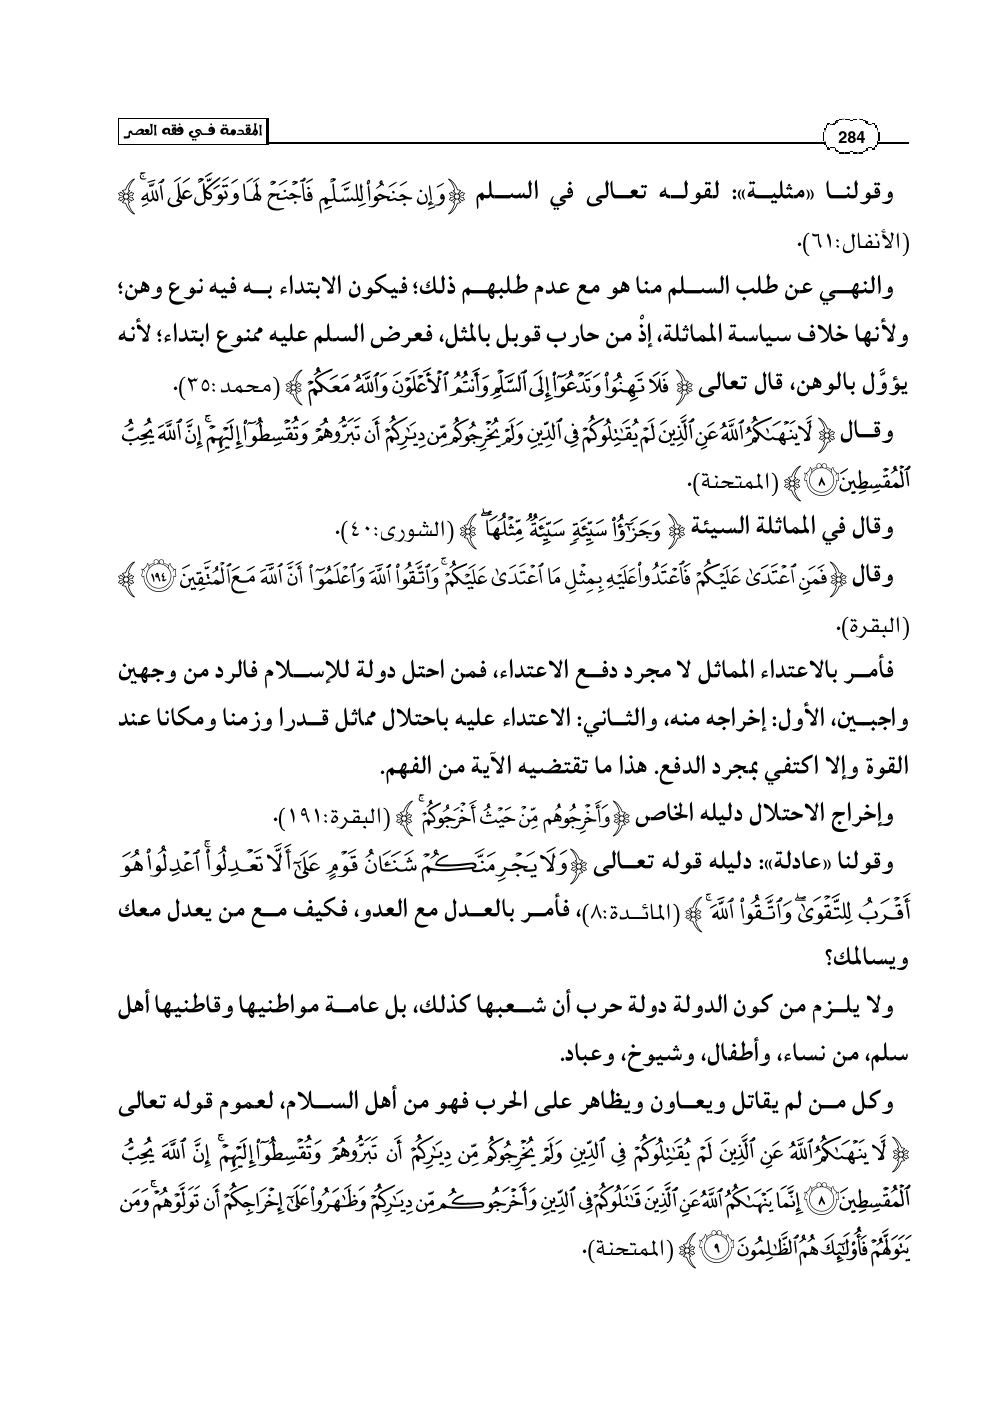 المقدمة في فقه العصر
284
وقولنا «مثلية»: لقوله تعالى في السلم ﴿وَإِن جَنَحُوا۟ لِلسَّلْمِ فَٱجْنَحْ لَهَا وَتَوَكَّلْ عَلَى ٱللَّهِ ۚ﴾
(الأنفال:٦١).
والنهي عن طلب السلم منا هو مع عدم طلبهم ذلك؛ فيكون الابتداء به فيه نوع وهن؛
ولأنها خلاف سياسة المماثلة، إذْ من حارب قوبل بالمثل، فعرض السلم عليه ممنوع ابتداء؛ لأنه
يؤوَّل بالوهن، قال تعالى ﴿فَلَا تَهِنُوا۟ وَتَدْعُوٓا۟ إِلَى ٱلسَّلْمِ وَأَنتُمُ ٱلْأَعْلَوْنَ وَٱللَّهُ مَعَكُمْ﴾ (محمد:٣٥).
وقال ﴿لَّا يَنْهَىٰكُمُ ٱللَّهُ عَنِ ٱلَّذِينَ لَمْ يُقَـٰتِلُوكُمْ فِى ٱلدِّينِ وَلَمْ يُخْرِجُوكُم مِّن دِيَـٰرِكُمْ أَن تَبَرُّوهُمْ وَتُقْسِطُوٓا۟ إِلَيْهِمْ ۚ إِنَّ ٱللَّهَ يُحِبُّ
ٱلْمُقْسِطِينَ ٨﴾ (الممتحنة).
وقال في المماثلة السيئة ﴿وَجَزَٰٓؤُا۟ سَيِّئَةٍ سَيِّئَةٌ مِّثْلُهَا ۖ﴾ (الشورى:٤٠).
وقال ﴿فَمَنِ ٱعْتَدَىٰ عَلَيْكُمْ فَٱعْتَدُوا۟ عَلَيْهِ بِمِثْلِ مَا ٱعْتَدَىٰ عَلَيْكُمْ ۚ وَٱتَّقُوا۟ ٱللَّهَ وَٱعْلَمُوٓا۟ أَنَّ ٱللَّهَ مَعَ ٱلْمُتَّقِينَ ١٩٤﴾
(البقرة).
فأمر بالاعتداء المماثل لا مجرد دفع الاعتداء، فمن احتل دولة للإسلام فالرد من وجهين
واجبين، الأول: إخراجه منه، والثاني: الاعتداء عليه باحتلال مماثل قدرا وزمنا ومكانا عند
القوة وإلا اكتفي بمجرد الدفع. هذا ما تقتضيه الآية من الفهم.
وإخراج الاحتلال دليله الخاص ﴿وَأَخْرِجُوهُم مِّنْ حَيْثُ أَخْرَجُوكُمْ ۚ﴾ (البقرة:١٩١).
وقولنا «عادلة»: دليله قوله تعالى ﴿وَلَا يَجْرِمَنَّكُمْ شَنَـَٔانُ قَوْمٍ عَلَىٰٓ أَلَّا تَعْدِلُوا۟ ۚ ٱعْدِلُوا۟ هُوَ
أَقْرَبُ لِلتَّقْوَىٰ ۖ وَٱتَّقُوا۟ ٱللَّهَ ۚ﴾ (المائدة:٨)، فأمر بالعدل مع العدو، فكيف مع من يعدل معك
ويسالمك؟
ولا يلزم من كون الدولة دولة حرب أن شعبها كذلك، بل عامة مواطنيها وقاطنيها أهل
سلم، من نساء، وأطفال، وشيوخ، وعباد.
وكل من لم يقاتل ويعاون ويظاهر على الحرب فهو من أهل السلام، لعموم قوله تعالى
﴿لَّا يَنْهَىٰكُمُ ٱللَّهُ عَنِ ٱلَّذِينَ لَمْ يُقَـٰتِلُوكُمْ فِى ٱلدِّينِ وَلَمْ يُخْرِجُوكُم مِّن دِيَـٰرِكُمْ أَن تَبَرُّوهُمْ وَتُقْسِطُوٓا۟ إِلَيْهِمْ ۚ إِنَّ ٱللَّهَ يُحِبُّ
ٱلْمُقْسِطِينَ ٨ إِنَّمَا يَنْهَىٰكُمُ ٱللَّهُ عَنِ ٱلَّذِينَ قَـٰتَلُوكُمْ فِى ٱلدِّينِ وَأَخْرَجُوكُم مِّن دِيَـٰرِكُمْ وَظَـٰهَرُوا۟ عَلَىٰٓ إِخْرَاجِكُمْ أَن تَوَلَّوْهُمْ ۚ وَمَن
يَتَوَلَّهُمْ فَأُو۟لَـٰٓئِكَ هُمُ ٱلظَّـٰلِمُونَ ٩﴾ (الممتحنة).